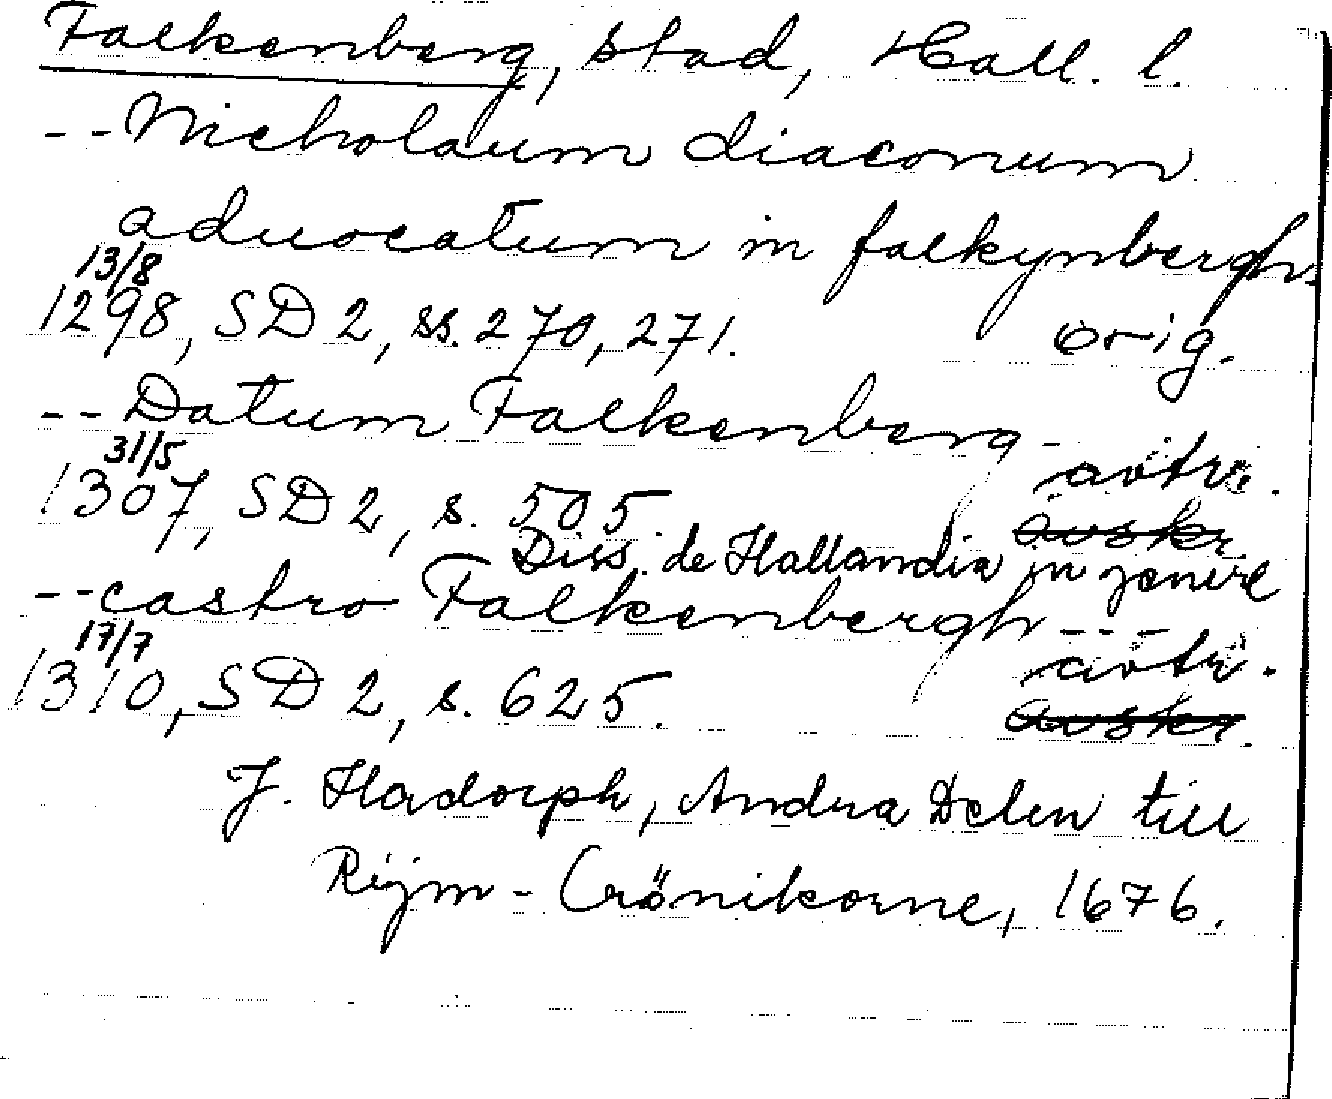 Falkenberg, stad, Hall. l.
-- Nicholaum diaconum
aduocatum in falkynbergh.
13/8
1298, SD 2, ss. 270, 271. orig.
-- Datum Falkenberg -
31/5 avtr.
1307, SD 2, s. 505. avskr
Diss. de Hallandia in genere
-- castro Falkenbergh ---
17/7 avtr.
1310, SD 2, s. 625. avskr.
J. Hadorph, Andra Delen till
Rijm-Crönikorne, 1676.